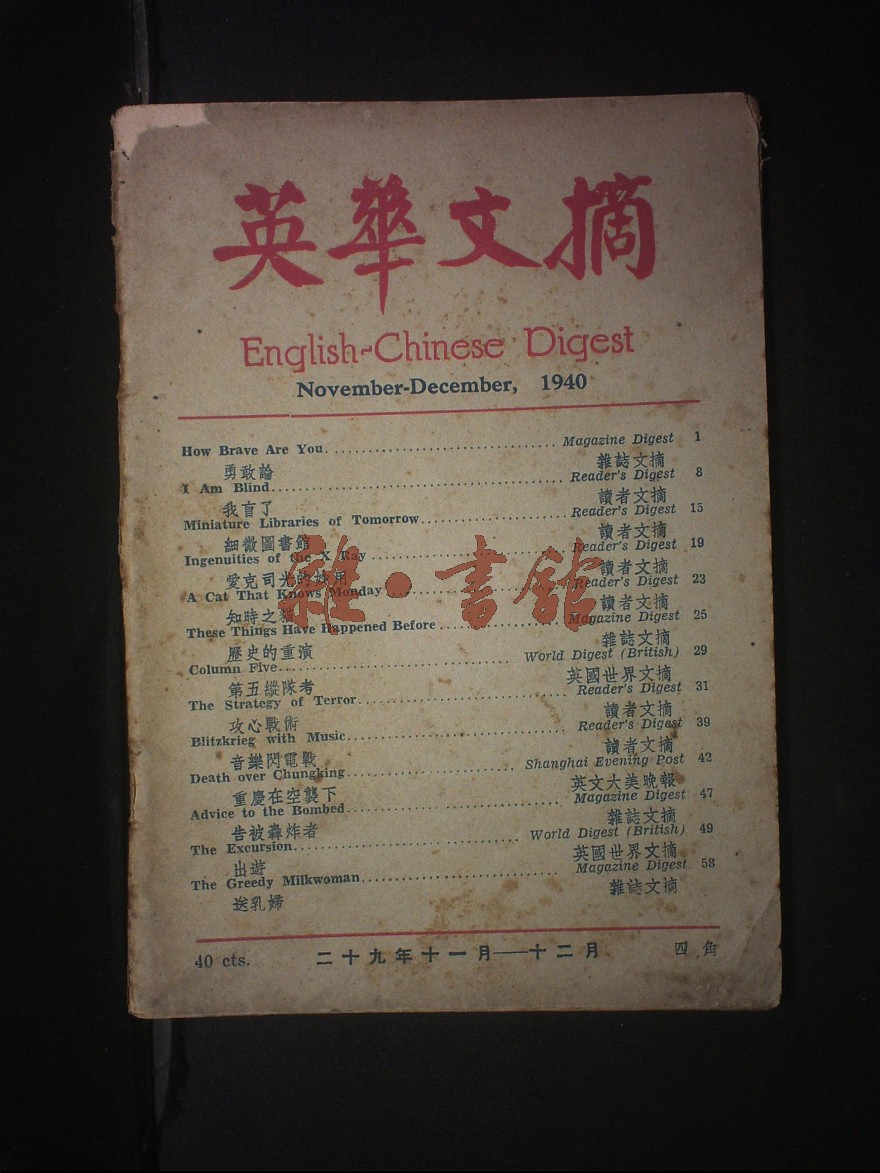 英華文摘
English-Chinese Digest
November-December, 1940
How Brave Are You................................ Magazine Digest 1
勇敢論 雜誌文摘
I Am Blind................................ Reader's Digest 8
我盲了 讀者文摘
Miniature Libraries of Tomorrow................................ Reader's Digest 15
細微圖書館 讀者文摘
Ingenuities of the X Ray................................ Reader's Digest 19
愛克司光的妙用 讀者文摘
A Cat That Knows Monday................................ Reader's Digest 23
知時之貓 讀者文摘
These Things Have Happened Before................................ Magazine Digest 25
歷史的重演 雜誌文摘
Column Five................................ World Digest (British) 29
第五縱隊考 英國世界文摘
The Strategy of Terror................................ Reader's Digest 31
攻心戰術 讀者文摘
Blitzkrieg with Music................................ Reader's Digest 39
音樂閃電戰 讀者文摘
Death over Chungking................................ Shanghai Evening Post 42
重慶在空襲下 英文大美晚報
Advice to the Bombed................................ Magazine Digest 47
告被轟炸者 雜誌文摘
The Excursion................................ World Digest (British) 49
出遊 英國世界文摘
The Greedy Milkwoman................................ Magazine Digest 58
送乳婦 雜誌文摘
40 cts. 二十九年十一月——十二月 四角
雜·書館